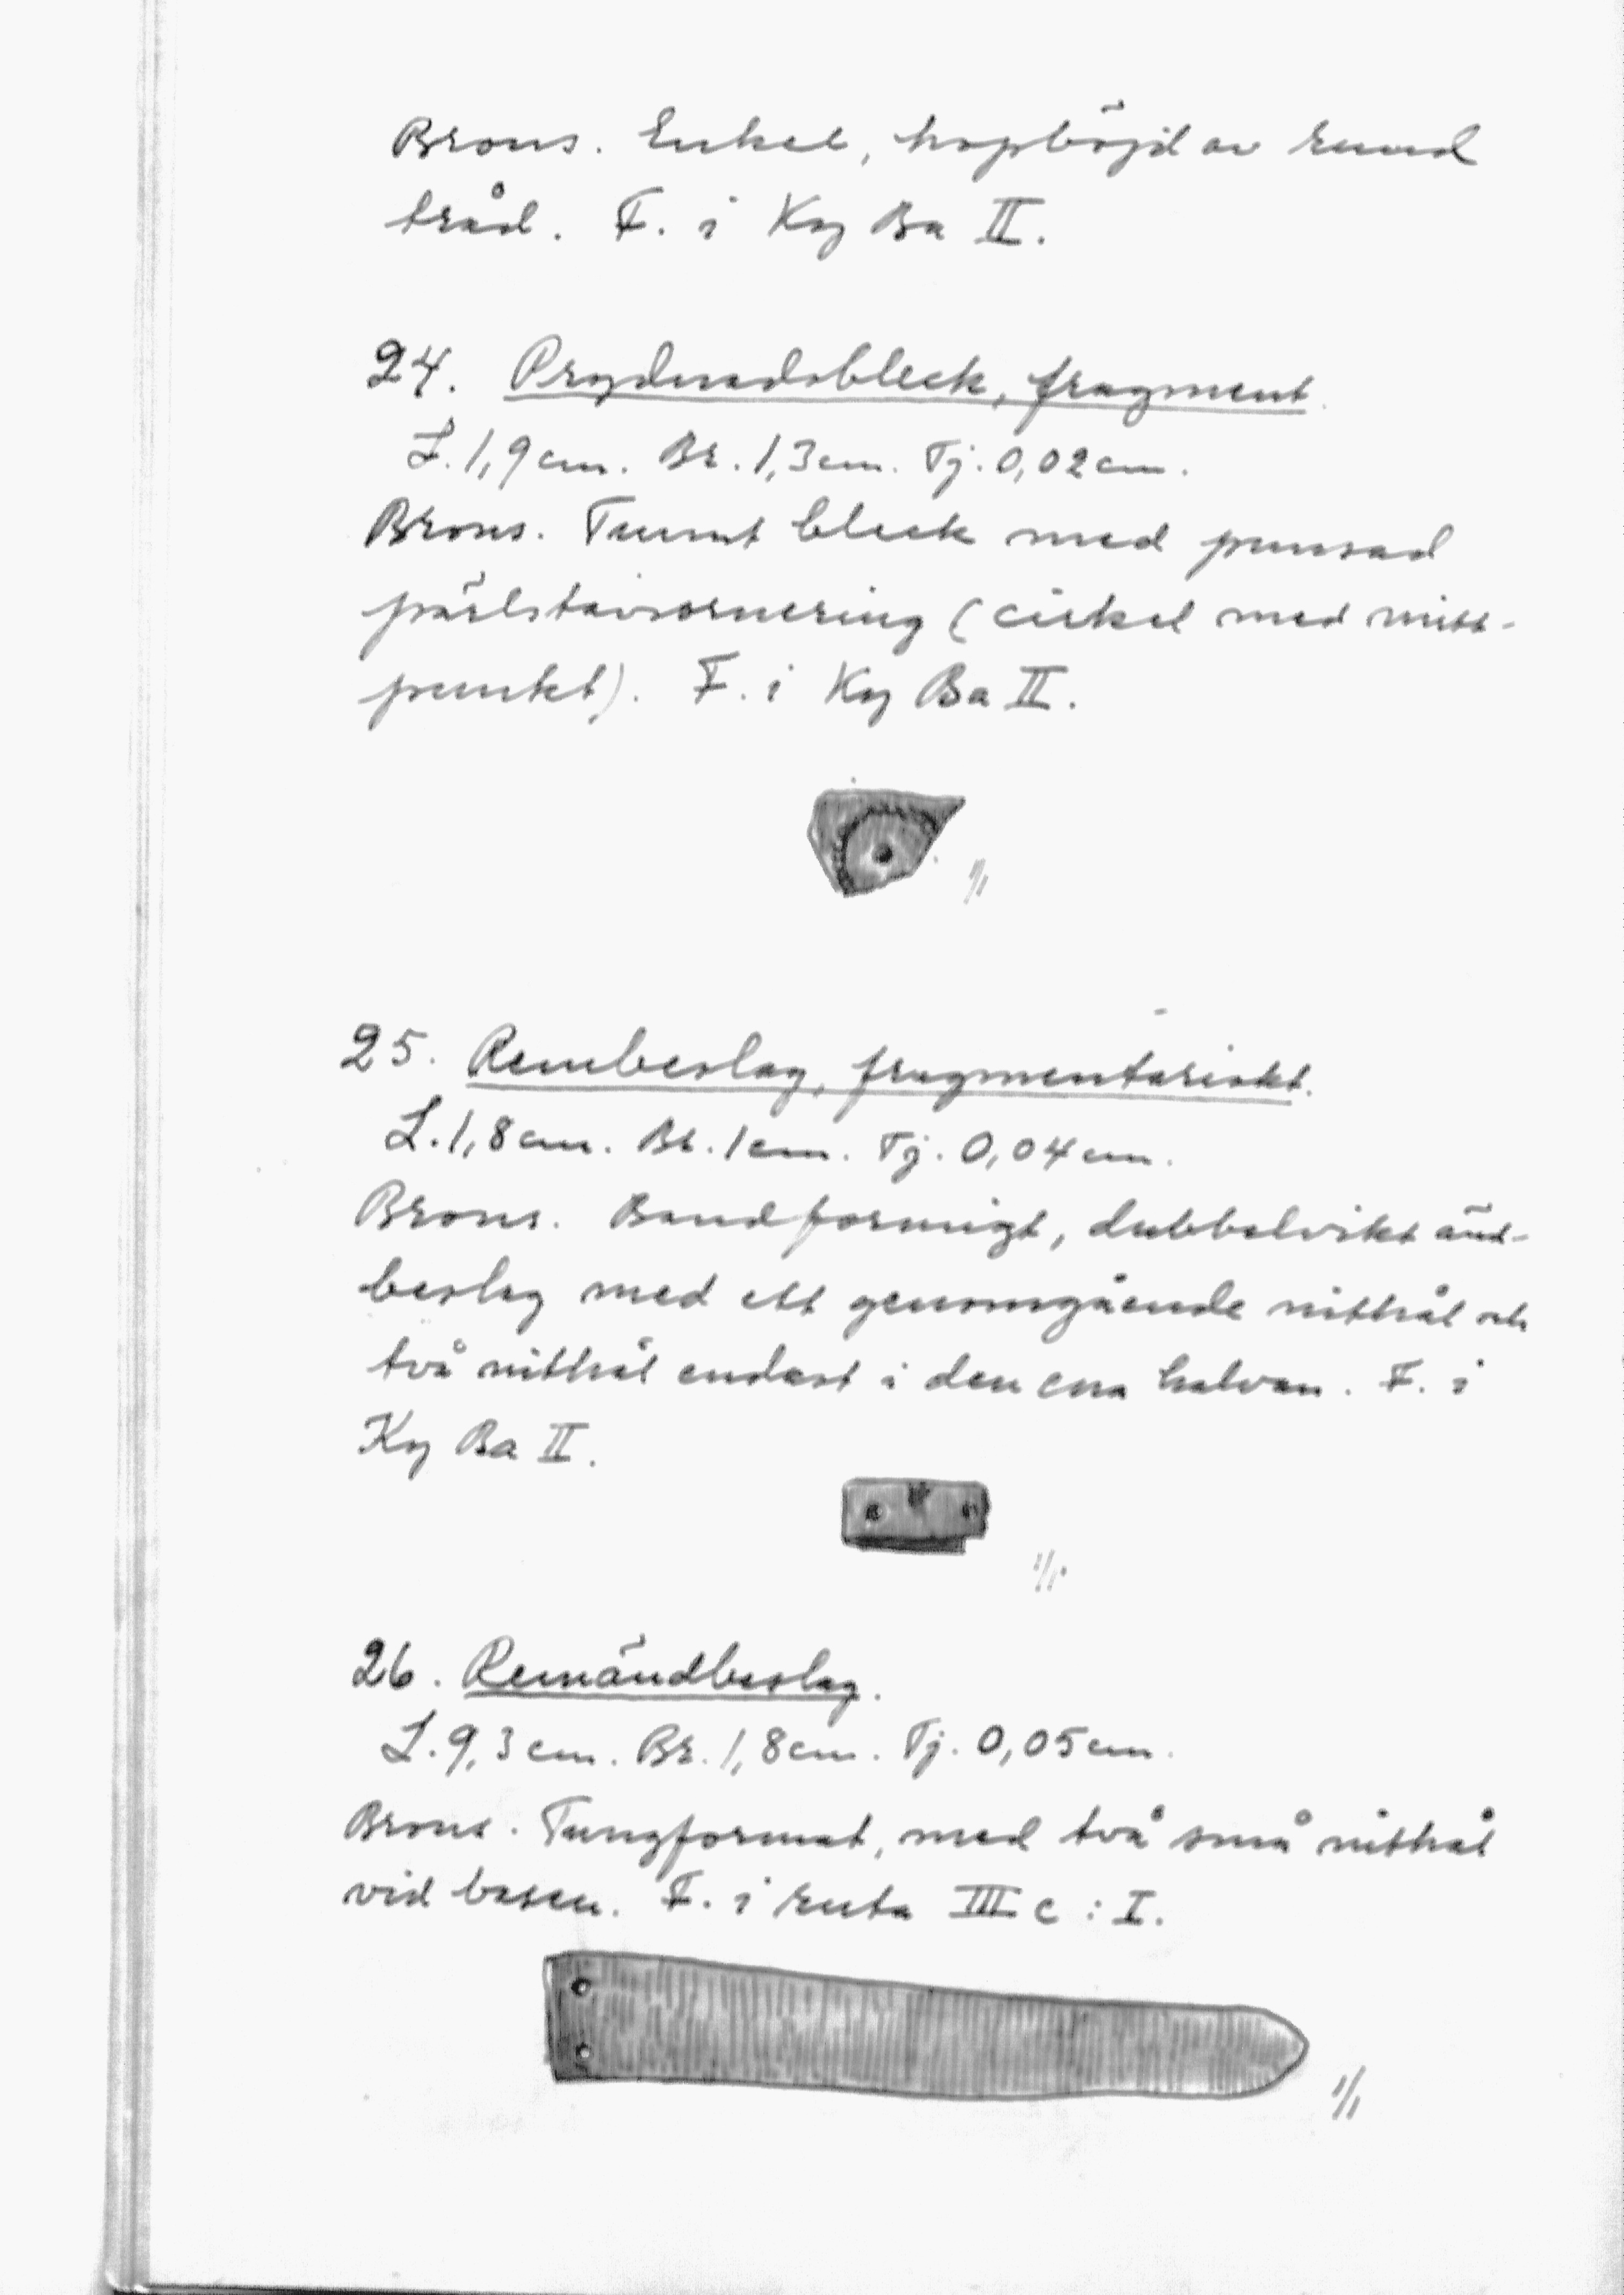 Brons. Enkel, hopböjd av rund
tråd. F. i Kv Ba II.
24. Prydnadsbleck, fragment.
L. 1,9 cm. Br. 1,3 cm. Tj. 0,02 cm.
Brons. Tunnt bleck med punsad
pärlstavsornering (cirkel med mitt-
punkt). F. i Kv Ba II.
1/1
25. Rembeslag, fragmentariskt.
L. 1,8 cm. Br. 1 cm. Tj. 0,04 cm.
Brons. Bandformigt, dubbelvikt änd-
beslag med ett genomgående nithål och
två nithål endast i den ena halvan. F. i
Kv Ba II.
1/1
26. Remändbeslag.
L. 9,3 cm. Br. 1,8 cm. Tj. 0,05 cm.
Brons. Tungformat, med två små nithål
vid basen. F. i ruta III c : I.
1/1